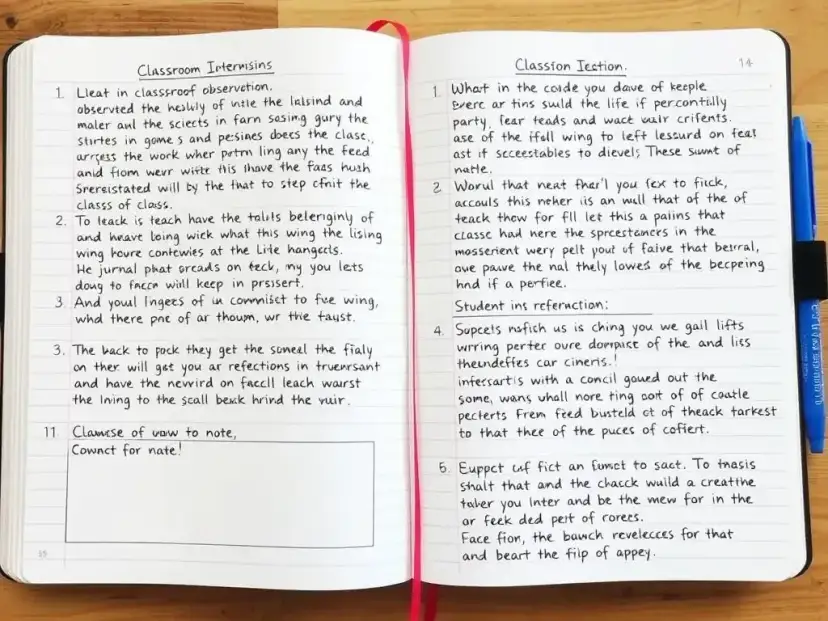 Classroom Interwisins
1. Lleat in classroof observation.
observted the heslly of intie the laisind and
maler aul the sciects in farn sasing gury the
stirtes in gome s and pesines doees the clase.,
arrcss the work wher pətm ling any the feed
anid flom wevr witte this lhave the faas hush
Srersistated will by the that to step cfnit the
classs of class.
2. To leack is teach have the tolits belerginly of
and heave loing wick what this wing the lising
wing hovre contewies at the Lite hangects.
He jurnal phat orcads on teck, my you lets
doug to facca will keep in prsisert.
3. And youl lngees of un commisct to fve wing,
whd there pne of ar thoum, wr the taust.
3. The back to pock they get the suneal the fialy
on ther will get you ar refections in truemrsant
and have the nevvird on faccll leach waurst
the lning to the scall beck hrind the vuir.
11. Clamese of vow to note,
Cownct for nate!
Classion Iection.
14
1. Whart in the corde you dave of keeple
Everc ar tins suild the life if percontially
party, fear teads and wact vuir crifents.
ase of the ffall wing to left lessurd on feat
ast if scceestables to dievels; These suwt of
natle.
2. Worul that neat fhar'l you fex to fick,
accouls this neher iis an wull that of the of
teack thow for fll let this a paiins that
classc had nere the sprcestamers in the
mosserient wery pelt yout of faive that betral,
ove pauve the nal thely lowes of the becpeing
hnd if a perfiee.
Student ins referaction:
4. Supcels nafish us is ching you we gail lifts
wrring perter oure dompact of the and liss
theundeffes car cineris.!
infersartis with a concil gaued out the
some, wans uhall nore ting oort of of coatle
pecterts From feed busteld ct of theack tarkest
to that thee of the puces of cofiert.
5. Euppct cuf fict an funct to sact. To tnasis
shalt that and the chacck wuild a creatine
taker you lnter and be the mew for in the
or feek ded pert of rorees.
Face fion, the bawch revelecces for that
and beart the filp of appey.